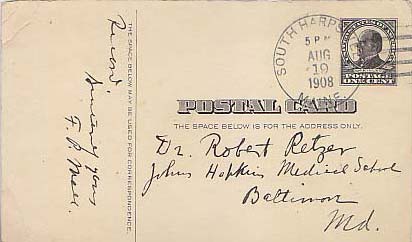 Record.
Sincerely yours
F. P. Mall.
THE SPACE BELOW MAY BE USED FOR CORRESPONDENCE.
SOUTH HARPS
5 P M
AUG
19
1908
MAINE.
POSTAGE
ONE CENT
POSTAL CARD
THE SPACE BELOW IS FOR THE ADDRESS ONLY.
Dr. Robert Retzer
Johns Hopkins Medical School
Baltimore
Md.